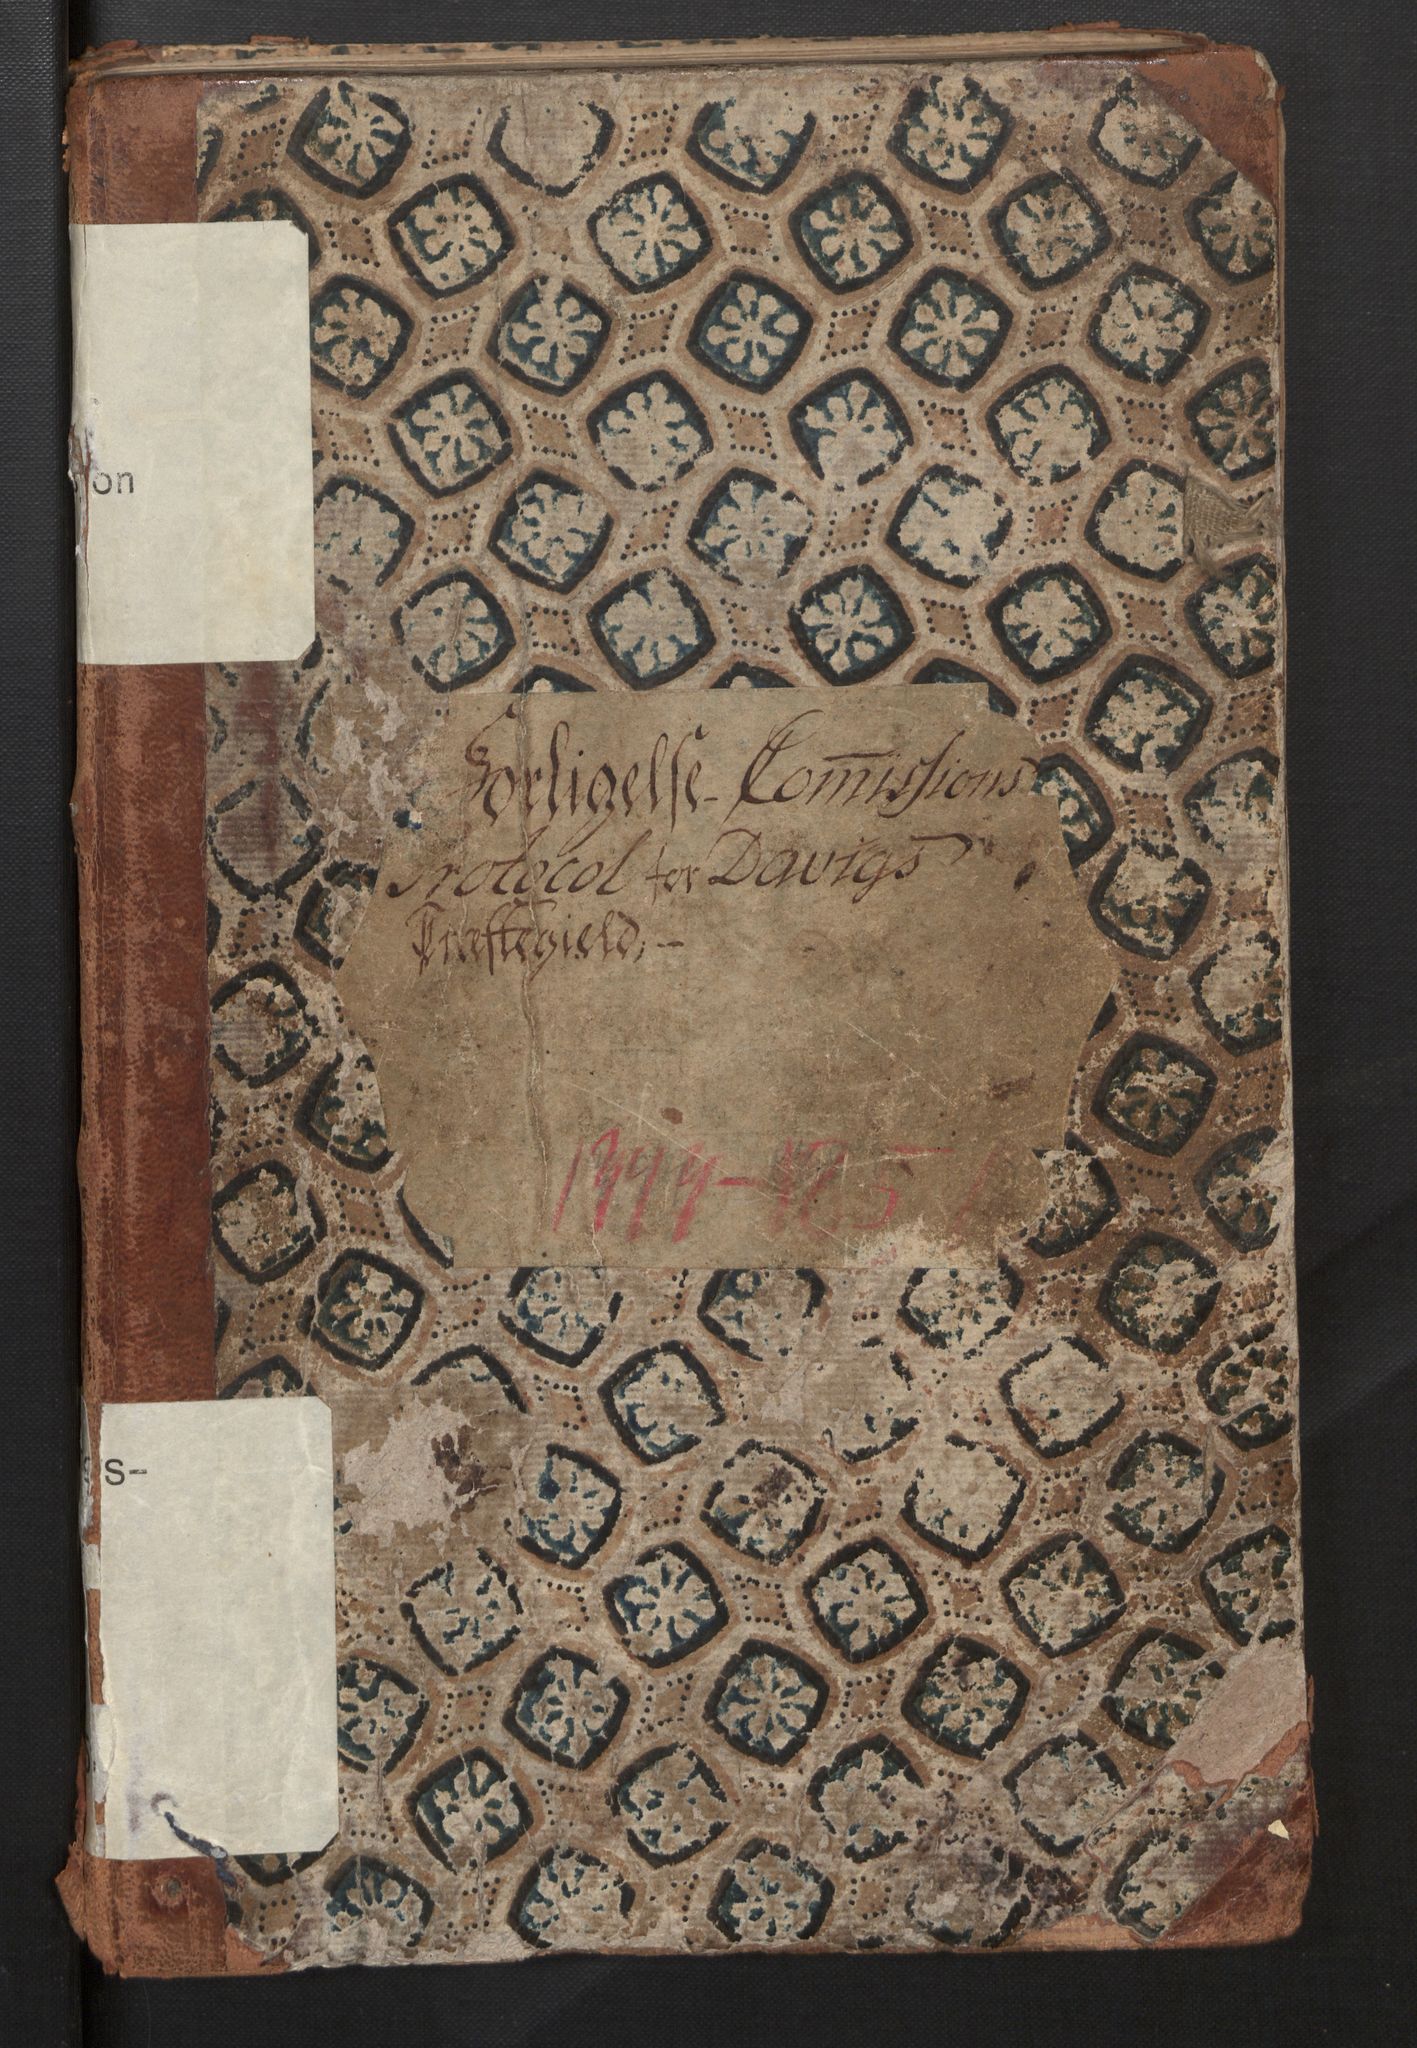 on
Forligelse- Com̅issions
Protocol for Davigs
Præstegield,-
s-